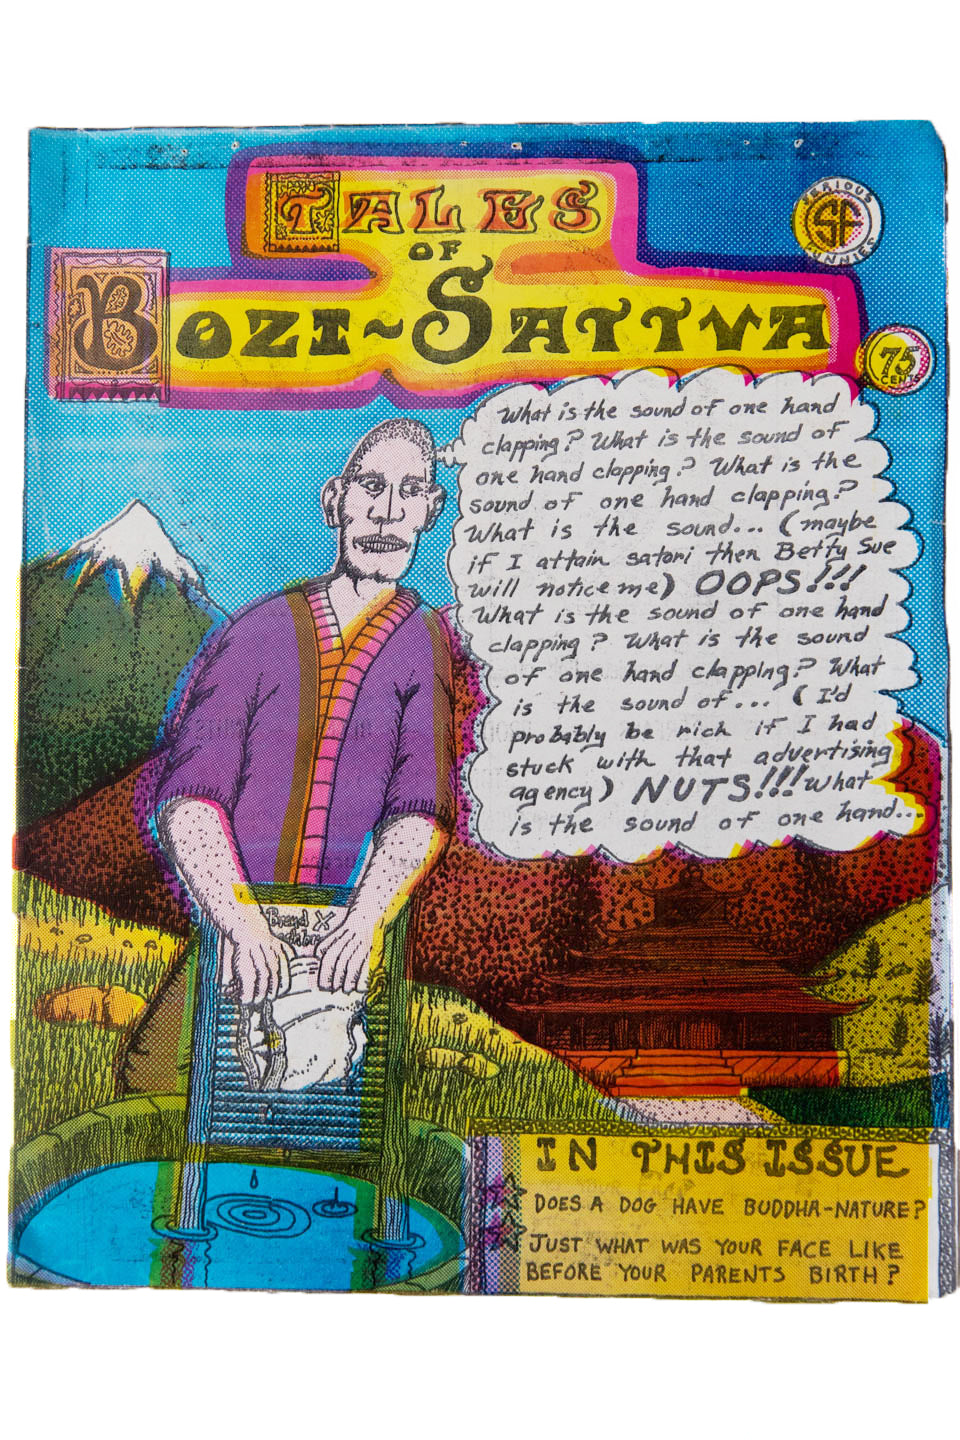 TALES
OF
BOZI~SATTVA
SERIOUS
SF
FUNNIES
75
CENTS
What is the sound of one hand
clapping? What is the sound of
one hand clapping? What is the
sound of one hand clapping?
What is the sound... (maybe
if I attain satori then Betty Sue
will notice me) OOPS!!!
What is the sound of one hand
clapping? What is the sound
of one hand clapping? What
is the sound of... (I'd
probably be rich if I had
stuck with that advertising
agency) NUTS!!! What
is the sound of one hand...
Brand X
IN THIS ISSUE
DOES A DOG HAVE BUDDHA-NATURE?
JUST WHAT WAS YOUR FACE LIKE
BEFORE YOUR PARENTS BIRTH?